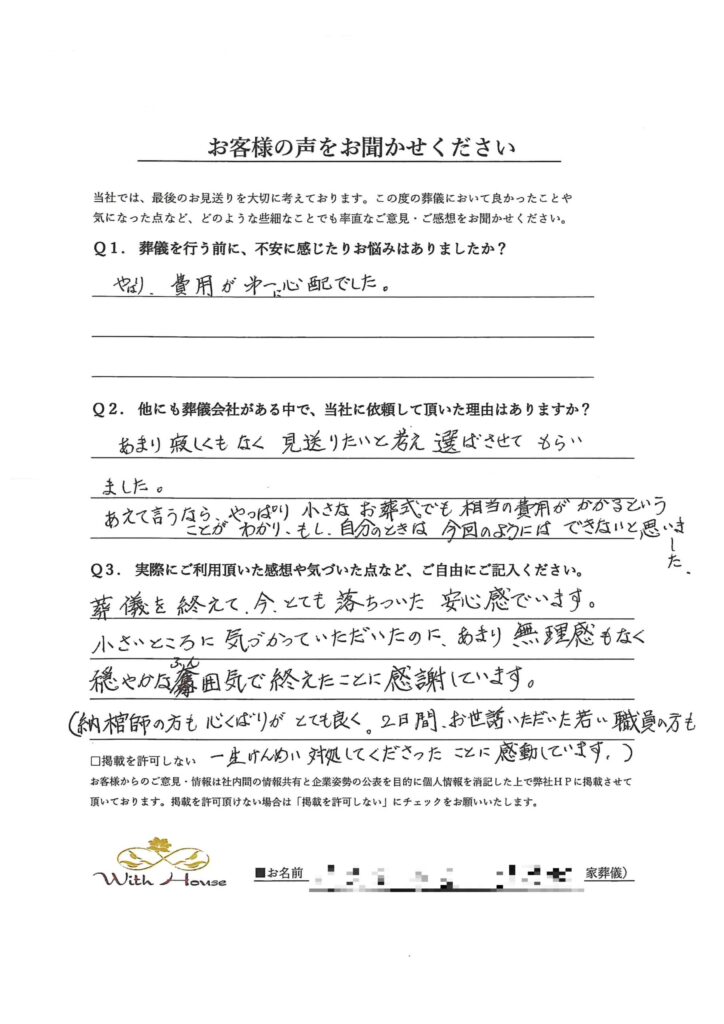 お客様の声をお聞かせください
当社では、最後のお見送りを大切に考えております。この度の葬儀において良かったことや
気になった点など、どのような些細なことでも率直なご意見・ご感想をお聞かせください。
Q1. 葬儀を行う前に、不安に感じたりお悩みはありましたか？
やはり、費用が第一に心配でした。
Q2. 他にも葬儀会社がある中で、当社に依頼して頂いた理由はありますか？
あまり寂しくもなく 見送りたいと考え 選ばさせて もらい
ました。
あえて言うなら、やっぱり 小さな お葬式でも 相当の費用が かかるという
ことが わかり、もし、自分のときは 今回のようには できないと思いました。
Q3. 実際にご利用頂いた感想や気づいた点など、ご自由にご記入ください。
葬儀を終えて、今、とても 落ちついた 安心感でいます。
小さいところに 気づかっていただいたのに、あまり 無理感もなく
穏やかな雰囲気で終えたことに感謝しています。
(納棺師の方も 心くばりが とても良く。2日間、お世話いただいた若い職員の方も
□掲載を許可しない 一生けんめい 対処してくださった ことに 感動しています。)
お客様からのご意見・情報は社内間の情報共有と企業姿勢の公表を目的に個人情報を消記した上で弊社HPに掲載させて
頂いております。掲載を許可頂けない場合は「掲載を許可しない」にチェックをお願いいたします。
With House
■お名前 家葬儀）